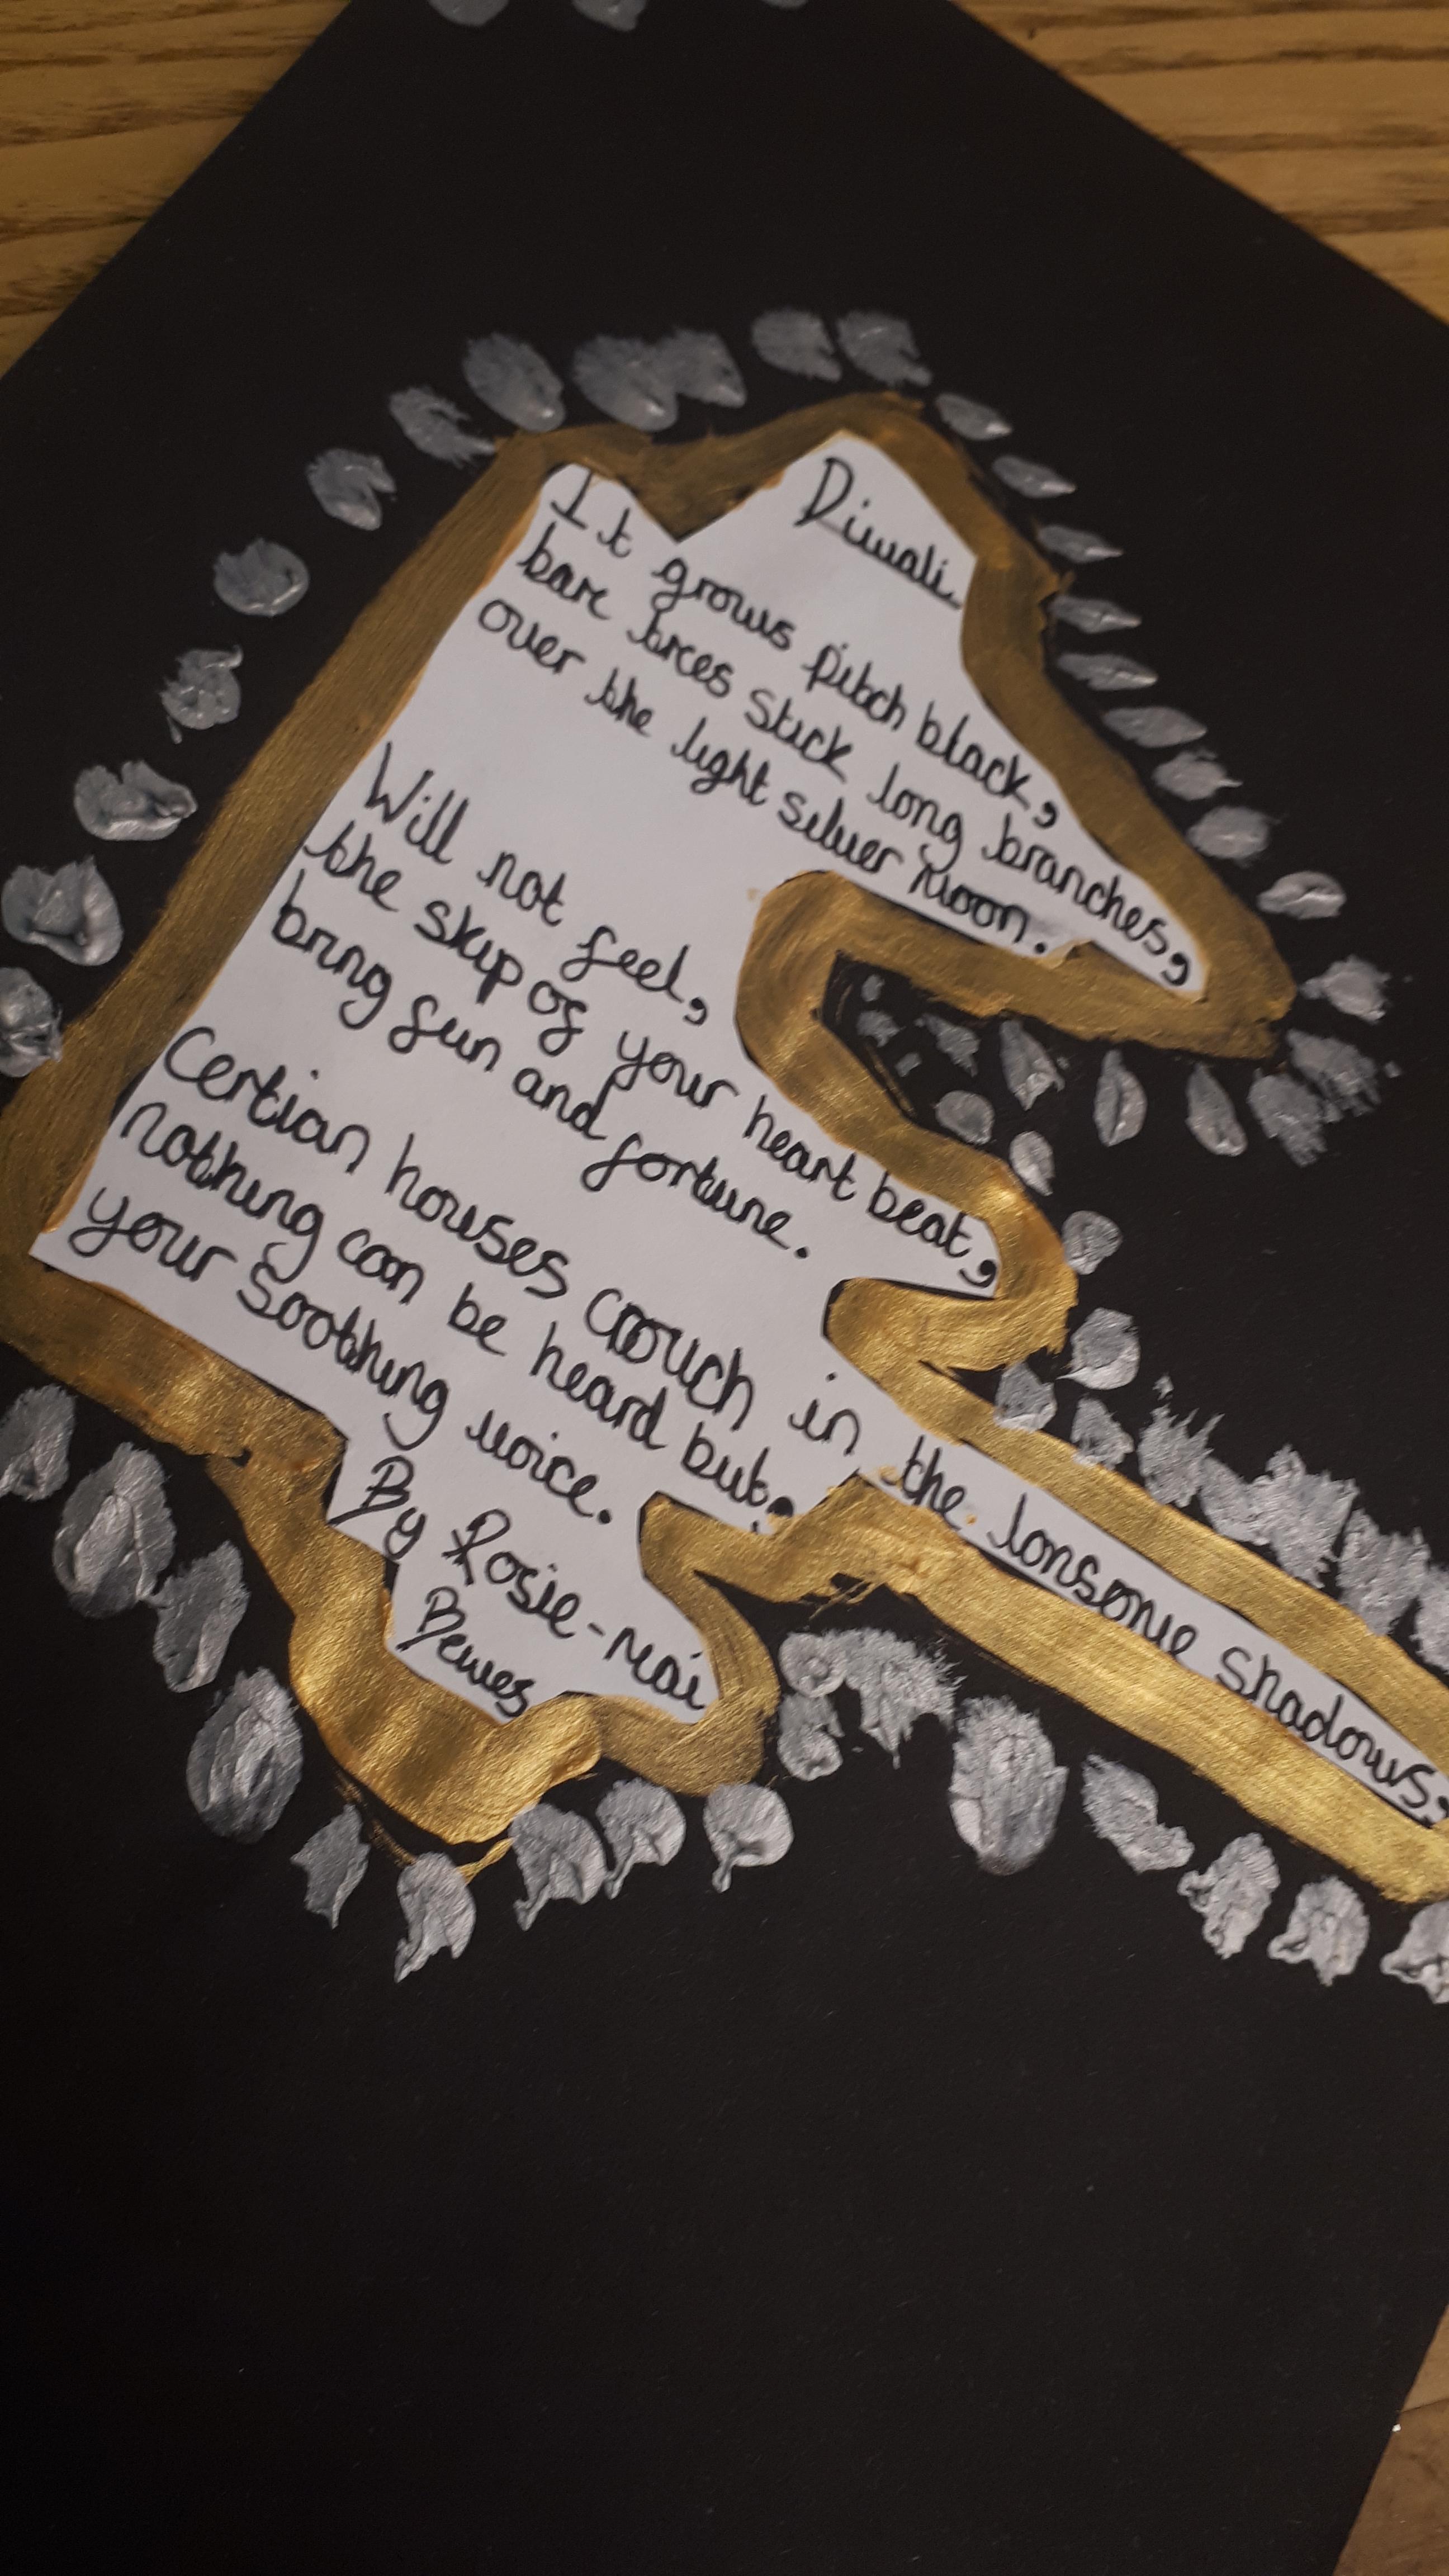 Diwali
It grows pitch black,
bare trees stick long branches,
over the light silver Moon.
Will not feel,
the skip of your heart beat,
bring fun and fortune.
Certian houses crouch in the lonsome shadows,
nothing can be heard but,
your soothing voice.
By Rosie-Mai
Dewes